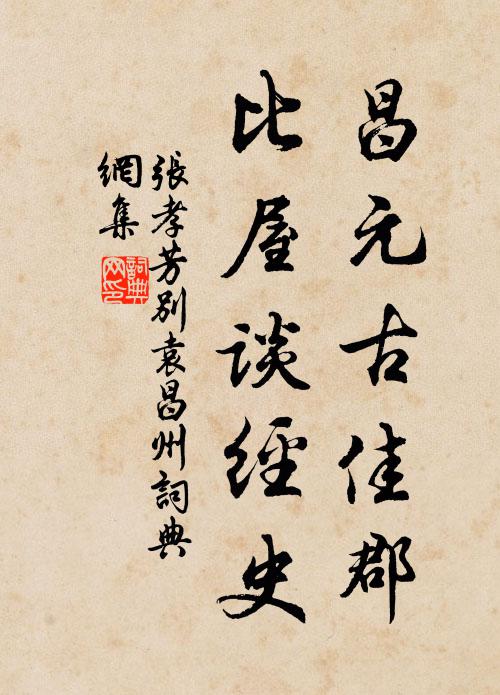 昌元古佳郡
比屋談經史
張孝芳別袁昌州詞典
網集
詞典
网印